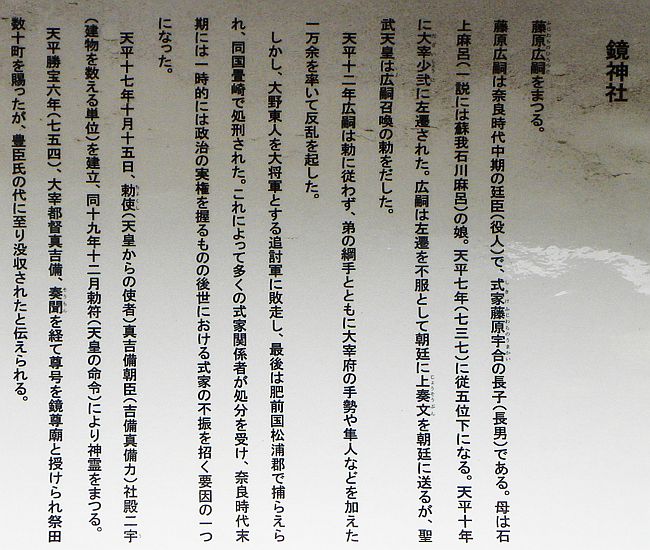 鏡神社
藤原広嗣をまつる。
藤原広嗣は奈良時代中期の廷臣(役人)で、式家藤原宇合の長子(長男)である。母は石
上麻呂(一説には蘇我石川麻呂)の娘。天平七年(七三七)に従五位下になる。天平十年
に大宰少弐に左遷された。広嗣は左遷を不服として朝廷に上奏文を朝廷に送るが、聖
武天皇は広嗣召喚の勅をだした。
天平十二年広嗣は勅に従わず、弟の綱手とともに大宰府の手勢や隼人などを加えた
一万余を率いて反乱を起した。
しかし、大野東人を大将軍とする追討軍に敗走し、最後は肥前国松浦郡で捕らえら
れ、同国畳崎で処刑された。これによって多くの式家関係者が処分を受け、奈良時代末
期には一時的には政治の実権を握るものの後世における式家の不振を招く要因の一つ
になった。
天平十七年十月十五日、勅使(天皇からの使者)真吉備朝臣(吉備真備カ)社殿二宇
(建物を数える単位)を建立、同十九年十二月勅符(天皇の命令)により神霊をまつる。
天平勝宝六年(七五四)、大宰都督真吉備、奏聞を経て尊号を鏡尊廟と授けられ祭田
数十町を賜ったが、豊臣氏の代に至り没収されたと伝えられる。